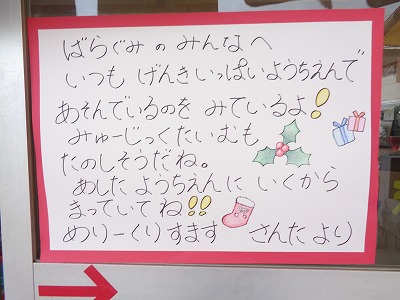 ばらぐみ の みんなへ
いつも げんきいっぱいようちえんで
あそんでいるのを みているよ!
みゅーじっくたいむも
たのしそうだね。
あした ようちえんに いくから
まっていてね!!
めりーくりすます さんたより